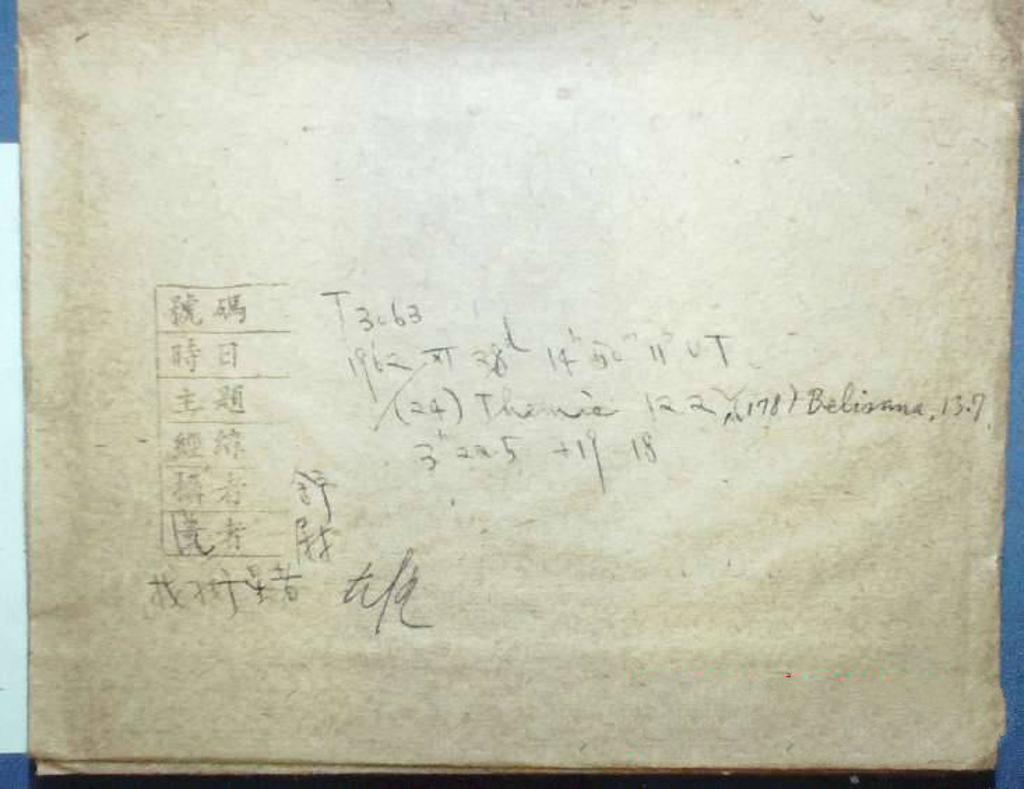 號碼 T 3063
時日 1962 XI 28d 14h 50m 11s UT
主題 (24) Themis 12.2, (178) Belisana, 13.7
經緯 3h 22.5 +19 18
攝者 舒
者
找行星者